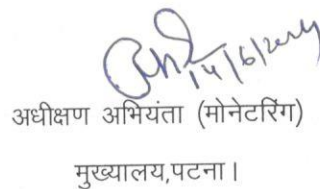 14/6/2024
अधीक्षण अभियंता (मोनेटरिंग)
मुख्यालय,पटना।